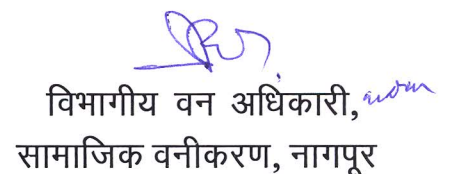 विभागीय वन अधिकारी,
सामाजिक वनीकरण, नागपूर